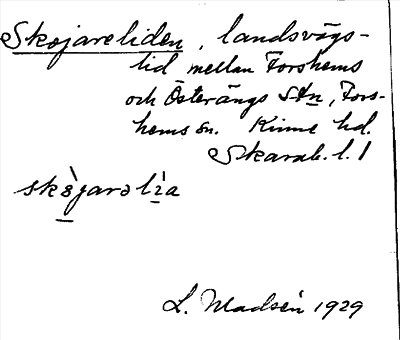 Skojareliden, landsvägs-
lid mellan Forshems
och Österängs Stn, Fors-
hems sn. Kinne hd.
Skarab. l. 1
skò̱jarə lìa
L. Madsén 1929